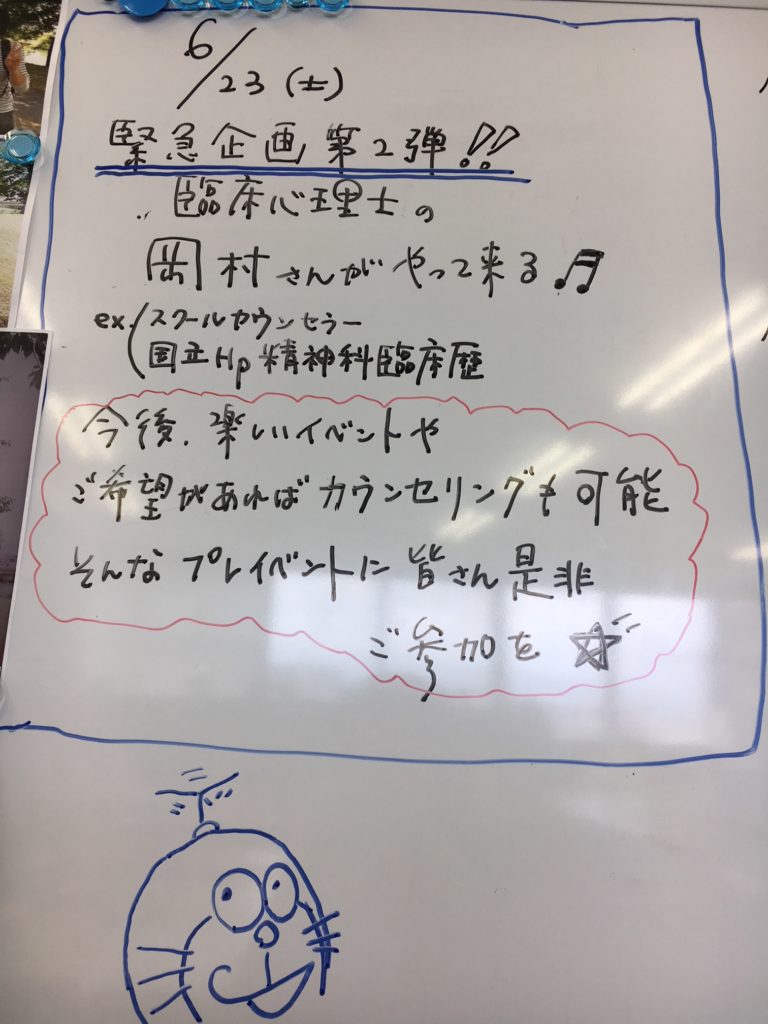 6/23(土)
緊急企画第2弾!!
臨床心理士の
岡村さんがやって来る♬
ex.(スクールカウンセラー
国立Hp精神科臨床歴
今後、楽しいイベントや
ご希望があればカウンセリングも可能
そんなプレイベントに皆さん是非
ご参加を☆